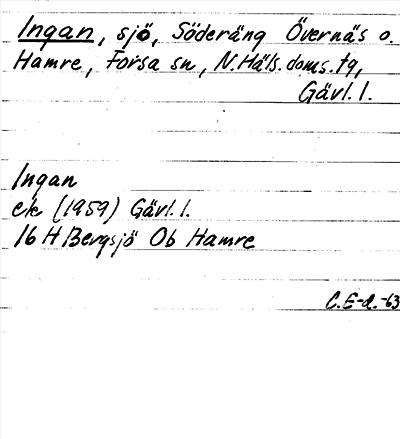 Ingan, sjö, Söderäng Övernäs o.
Hamre, Forsa sn, N.Häls.doms.tg,
Gävl.l.
Ingan
ek (1959) Gävl.l.
16 H Bergsjö Ob Hamre
C.E-d.-63